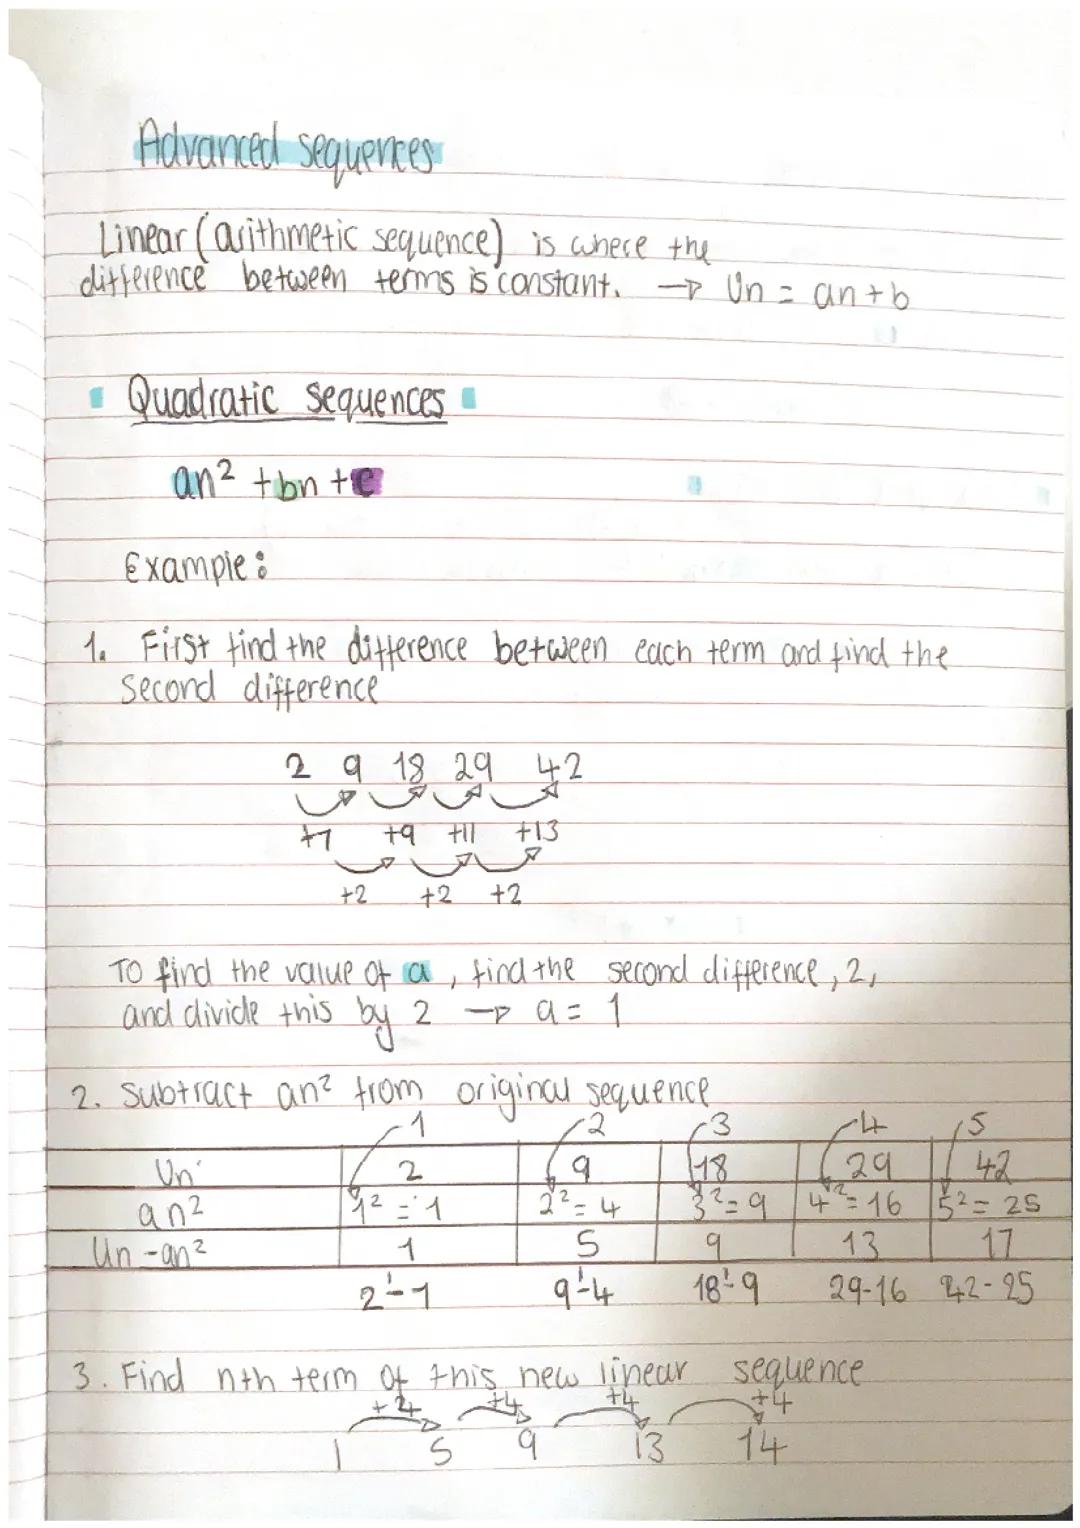 Advanced sequences
Linear (arithmetic sequence) is where the
difference between terms is constant. → Un = an + b
Quadratic sequences
an² + bn + c
Example:
1. First find the difference between each term and find the
second difference
2 9 18 29 42
+7 +9 +11 +13
+2 +2 +2
To find the value of a, find the second difference, 2,
and divide this by 2 → a = 1
2. Subtract an² from original sequence
1 2 3 4 5
Un 2 9 18 29 42
an² 1² = 1 2² = 4 3² = 9 4² = 16 5² = 25
Un - an² 1 5 9 13 17
2-1 9-4 18-9 29-16 42-25
3. Find nth term of this new linear sequence
+4 +4 +4 +4
1 5 9 13 14